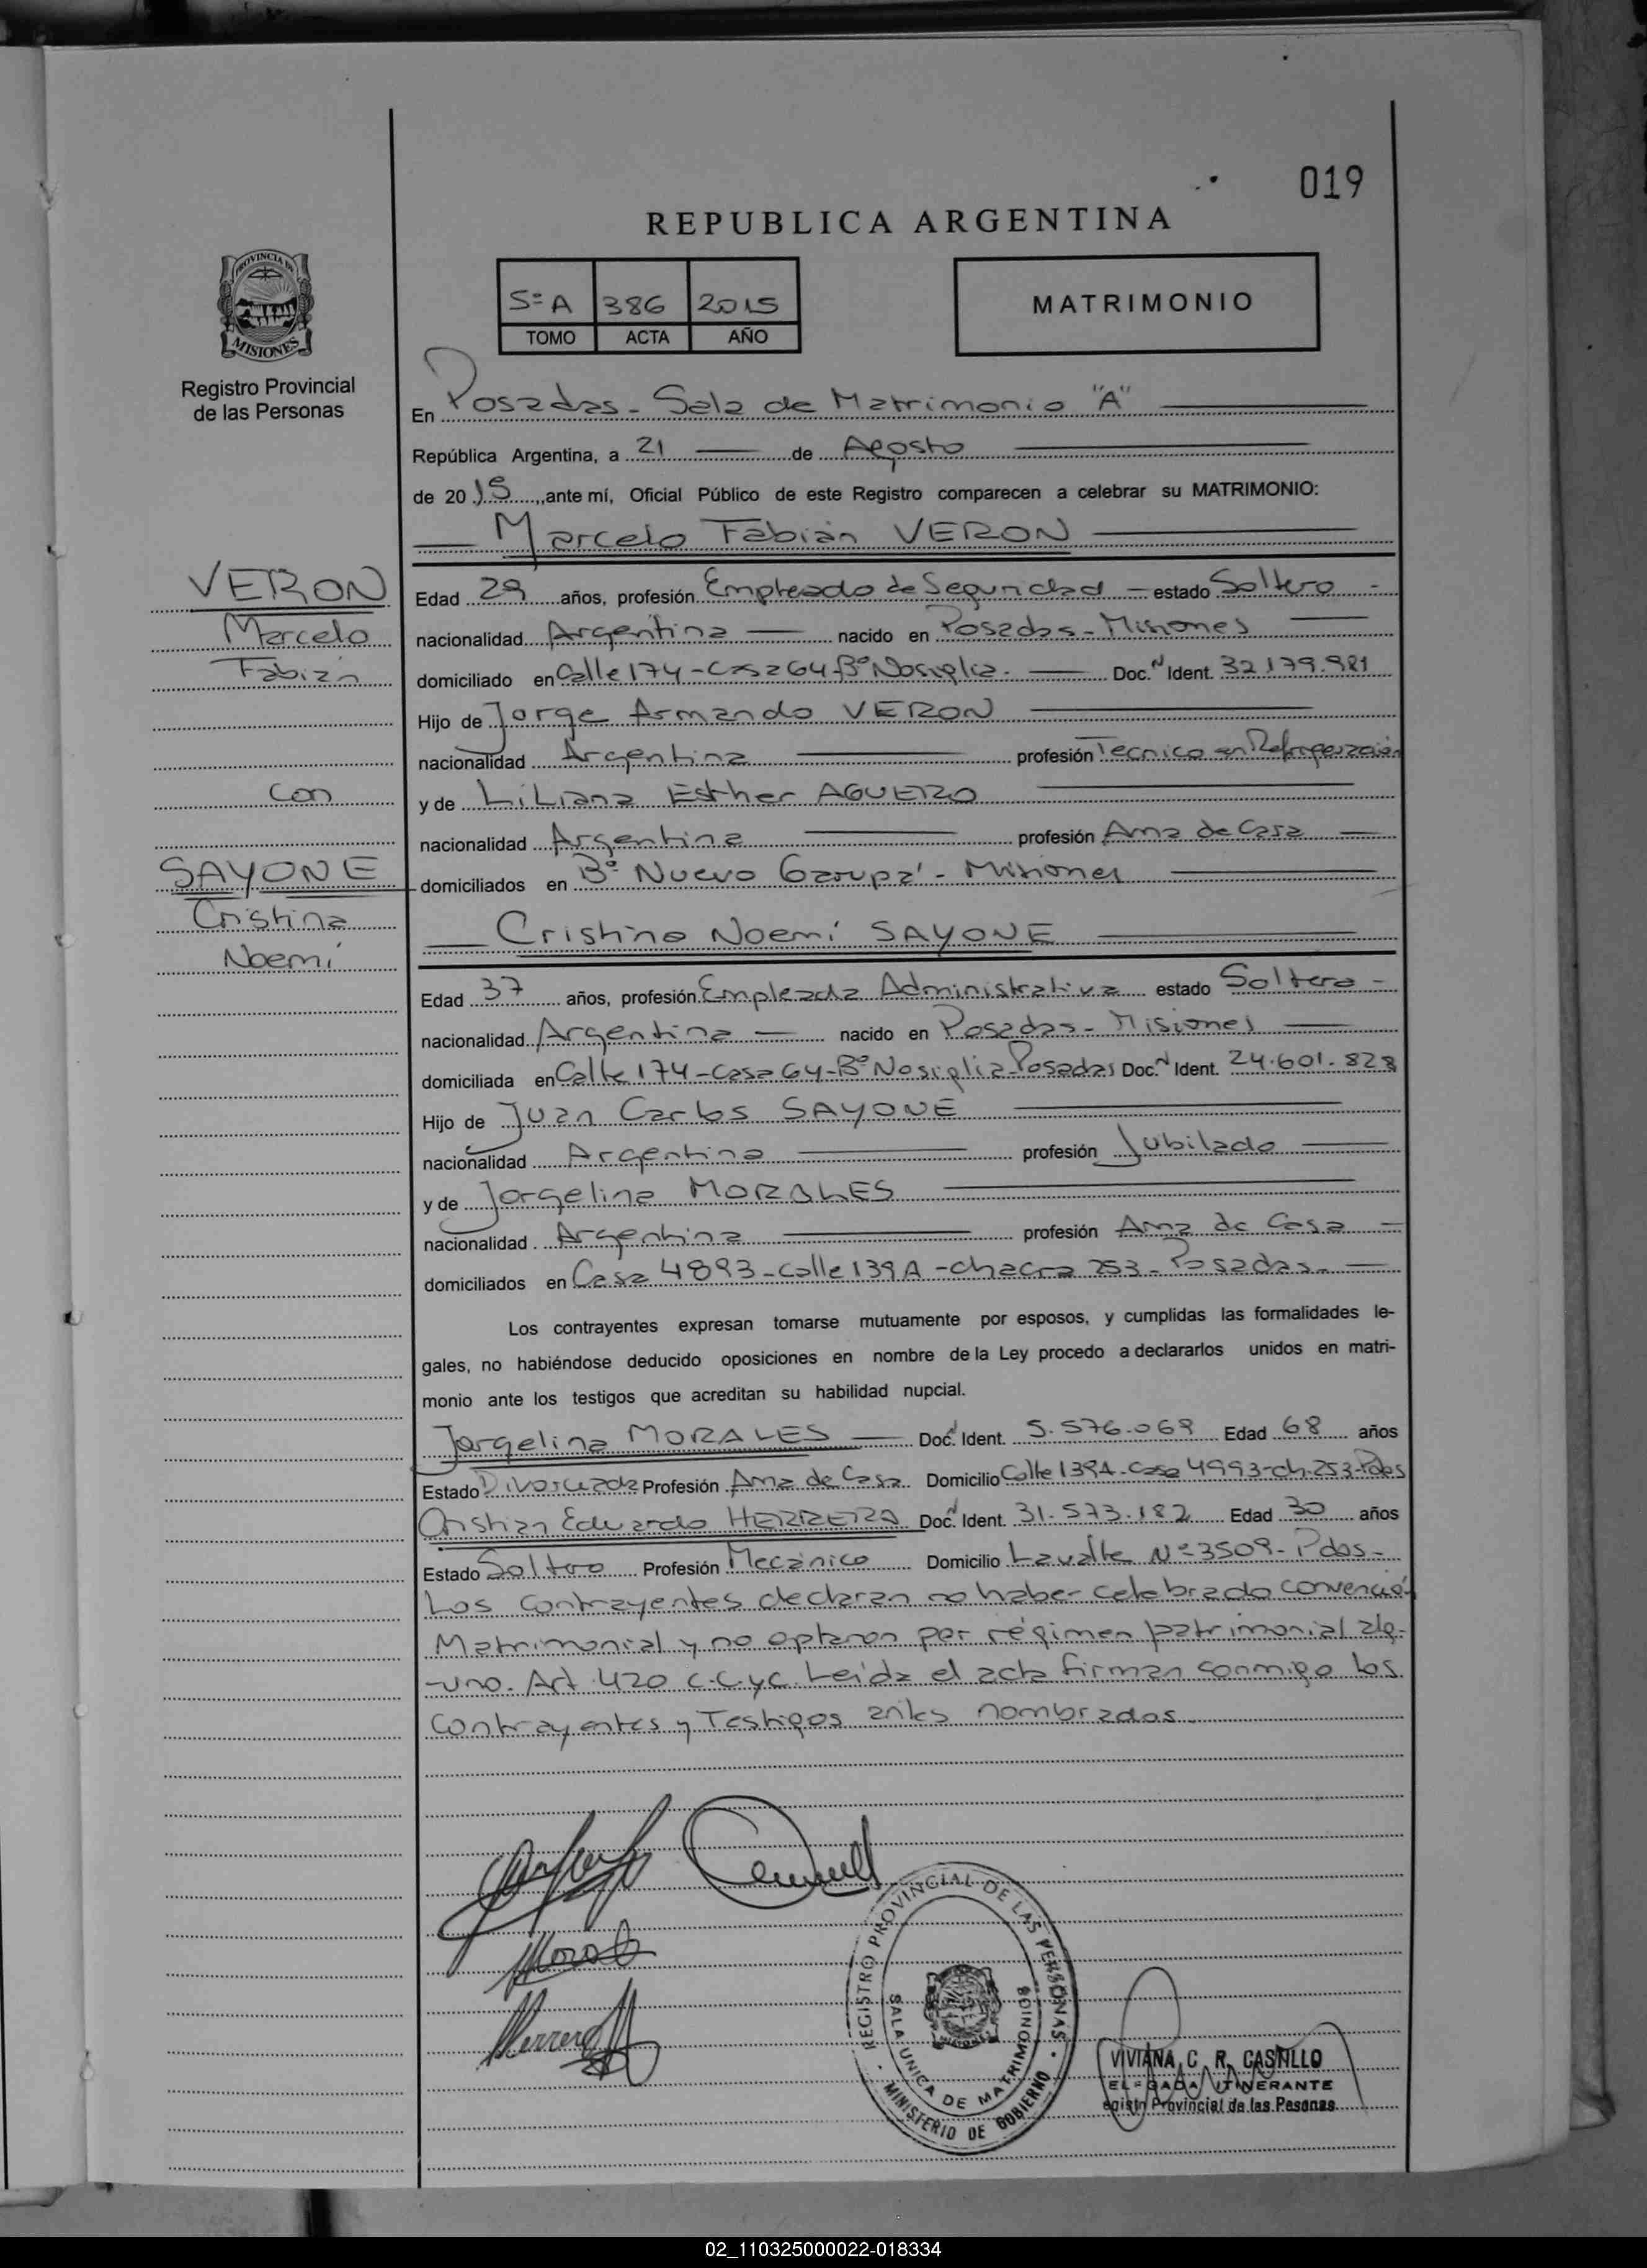 019
REPUBLICA ARGENTINA
PROVINCIA DE
MISIONES
Registro Provincial
de las Personas
5ºA 386 2015
TOMO ACTA AÑO
MATRIMONIO
En Posadas - Sala de Matrimonio "A"
República Argentina, a 21 de Agosto
de 2015, ante mí, Oficial Público de este Registro comparecen a celebrar su MATRIMONIO:
Marcelo Fabián VERON
VERON
Marcelo
Fabián
con
SAYONE
Cristina
Noemí
Edad 29 años, profesión Empleado de Seguridad estado Soltero
nacionalidad Argentina nacido en Posadas - Misiones
domiciliado en Calle 174 - casa 64 - Bº Nosiglia. Doc.N Ident. 32.179.981
Hijo de Jorge Armando VERON
nacionalidad Argentina profesión Tecnico en Refrigeración
y de Liliana Esther AGUERO
nacionalidad Argentina profesión Ama de Casa
domiciliados en Bº Nuevo Garupá - Misiones
Cristina Noemí SAYONE
Edad 37 años, profesión Empleada Administrativa estado Soltera -
nacionalidad Argentina nacido en Posadas - Misiones
domiciliada en Calle 174 - Casa 64 - Bº Nosiglia - Posadas Doc.N Ident. 24.601.828
Hijo de Juan Carlos SAYONE
nacionalidad Argentina profesión Jubilado
y de Jorgelina MORALES
nacionalidad Argentina profesión Ama de Casa
domiciliados en Casa 4893 - calle 139A - chacra 253 - Posadas.
Los contrayentes expresan tomarse mutuamente por esposos, y cumplidas las formalidades le-
gales, no habiéndose deducido oposiciones en nombre de la Ley procedo a declararlos unidos en matri-
monio ante los testigos que acreditan su habilidad nupcial.
Jorgelina MORALES Doc.N Ident. 5.576.069 Edad 68 años
Estado Divorciada Profesión Ama de Casa Domicilio Calle 139A - Casa 4993 - ch. 253 - Pdas
Cristian Eduardo HERRERA Doc.N Ident. 31.573.182 Edad 30 años
Estado Soltero Profesión Mecánico Domicilio Lavalle Nº 3509 - Pdas -
Los contrayentes declaran no haber celebrado convención
Matrimonial y no optaron por régimen patrimonial alg-
-uno. Art. 420 C.C.yC. Leída el acta firman conmigo los
contrayentes y Testigos antes nombrados.
REGISTRO PROVINCIAL DE LAS PERSONAS
SALA UNICA DE MATRIMONIOS
MINISTERIO DE GOBIERNO
VIVIANA C. R. CASTILLO
ELEGADA ITINERANTE
egistro Provincial de las Pesonas
02_110325000022-018334